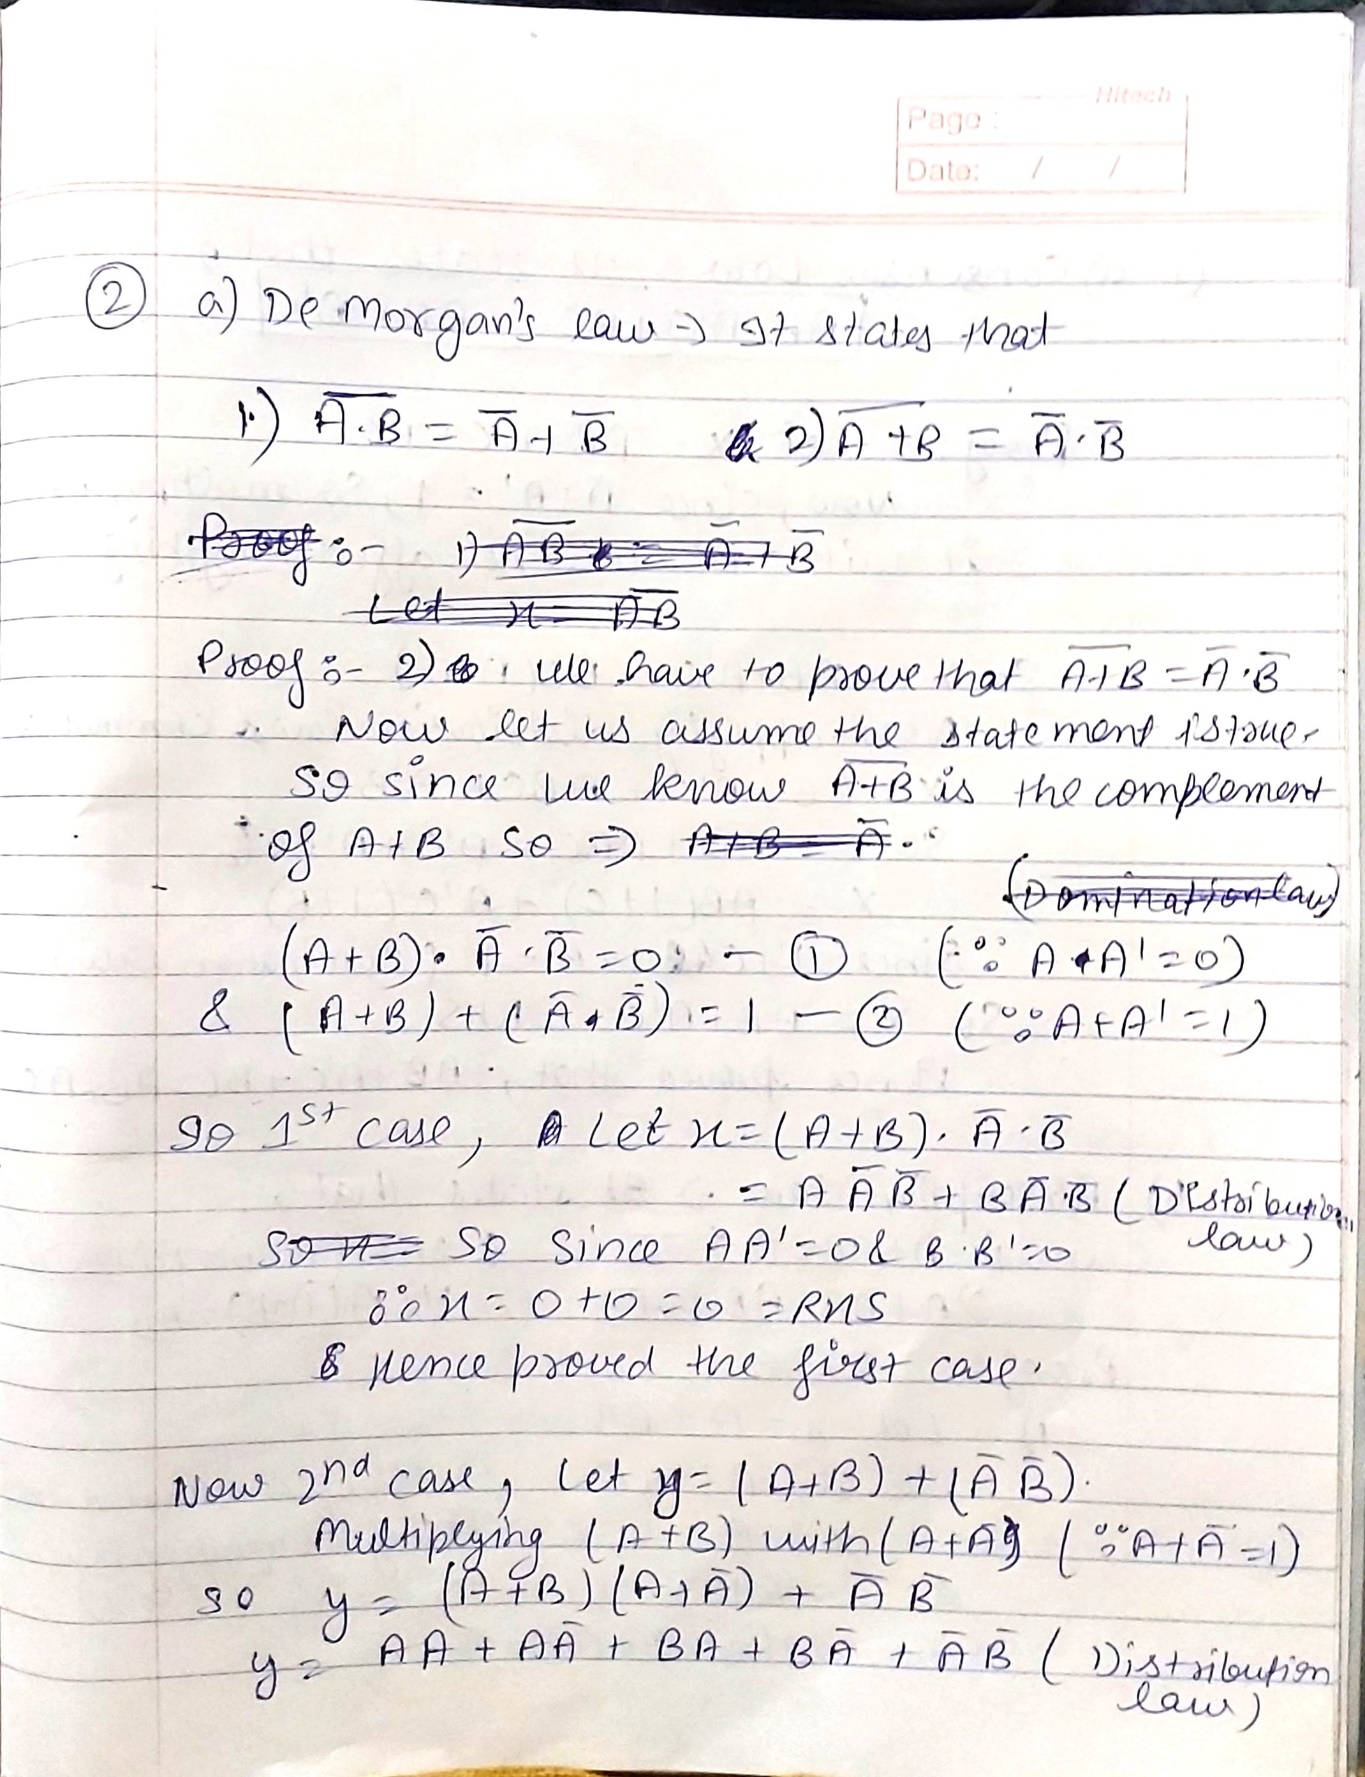 Hitech
Page :
Date: / /
② a) De Morgan's law → It states that
1.) A̅.̅B̅ = A̅ + B̅ & 2) A̅ ̅+̅B̅ = A̅.B̅
Proof :- 1) A̅B̅ = A̅ + B̅
Let x = A̅B̅
Proof :- 2) We have to prove that A̅+̅B̅ = A̅.B̅
Now let us assume the statement is true.
So since we know A̅+̅B̅ is the complement
of A+B so ⇒ A+B = A̅.
(Domination law)
(A+B). A̅.B̅ = 0 - ① (∵ A.A' = 0)
& (A+B) + (A̅.B̅) = 1 - ② (∵ A+A' = 1)
So 1st case, Let x = (A+B). A̅.B̅
= A A̅ B̅ + B A̅.B̅ (Distribution
law)
So x = So since AA' = 0 & B.B' = 0
∴ x = 0+0 = 0 = RHS
Hence proved the first case.
Now 2nd case, Let y = (A+B) + (A̅ B̅).
Multiplying (A+B) with (A+A̅) (∵ A+A̅ = 1)
so y = (A+B) (A+A̅) + A̅ B̅
y = AA + AA̅ + BA + BA̅ + A̅ B̅ (Distribution
law)